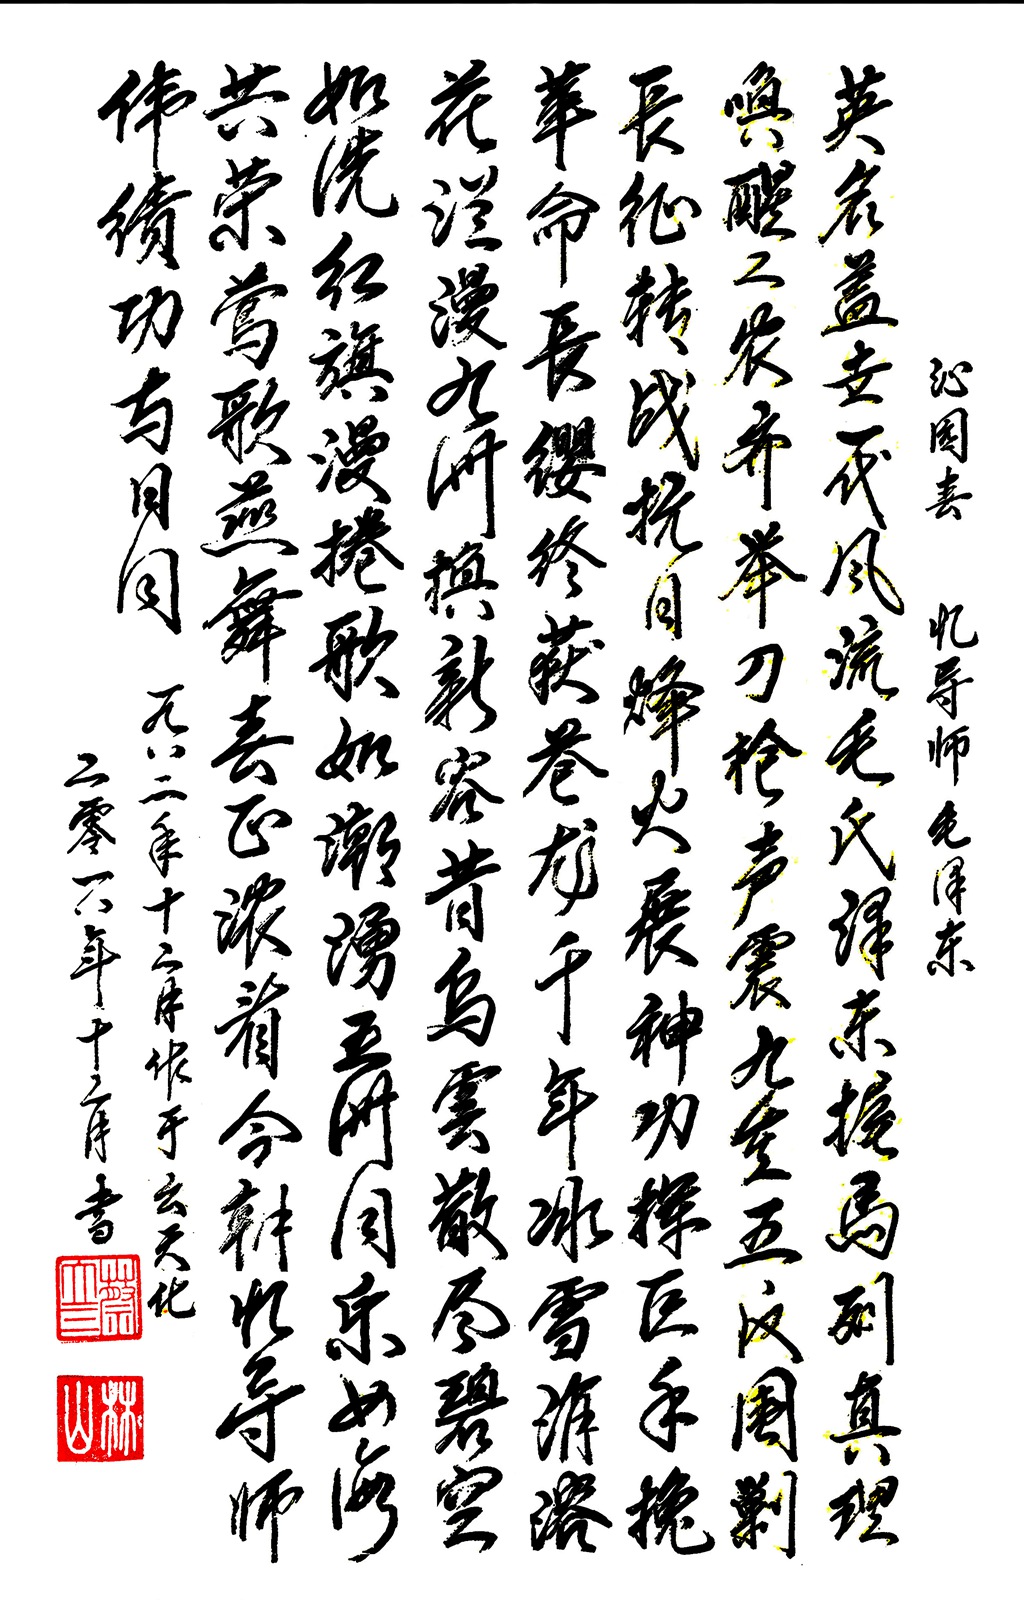 沁园春 忆导师毛泽东
英名盖世一代风流毛氏泽东握马列真理
唤醒工农齐举刀枪声震九天五次围剿
長征转战抗日烽火展神功挥巨手挽
革命長缨终获苍龙千年冰雪消溶
花漫九洲换新容昔乌雲散尽碧空
如洗红旗漫捲歌如潮涌五洲同乐四海
共荣莺歌燕舞春正浓看今朝忆导师
伟绩功与日同
一九八二年十二月作于云天化
二零一八年十二月书
林山